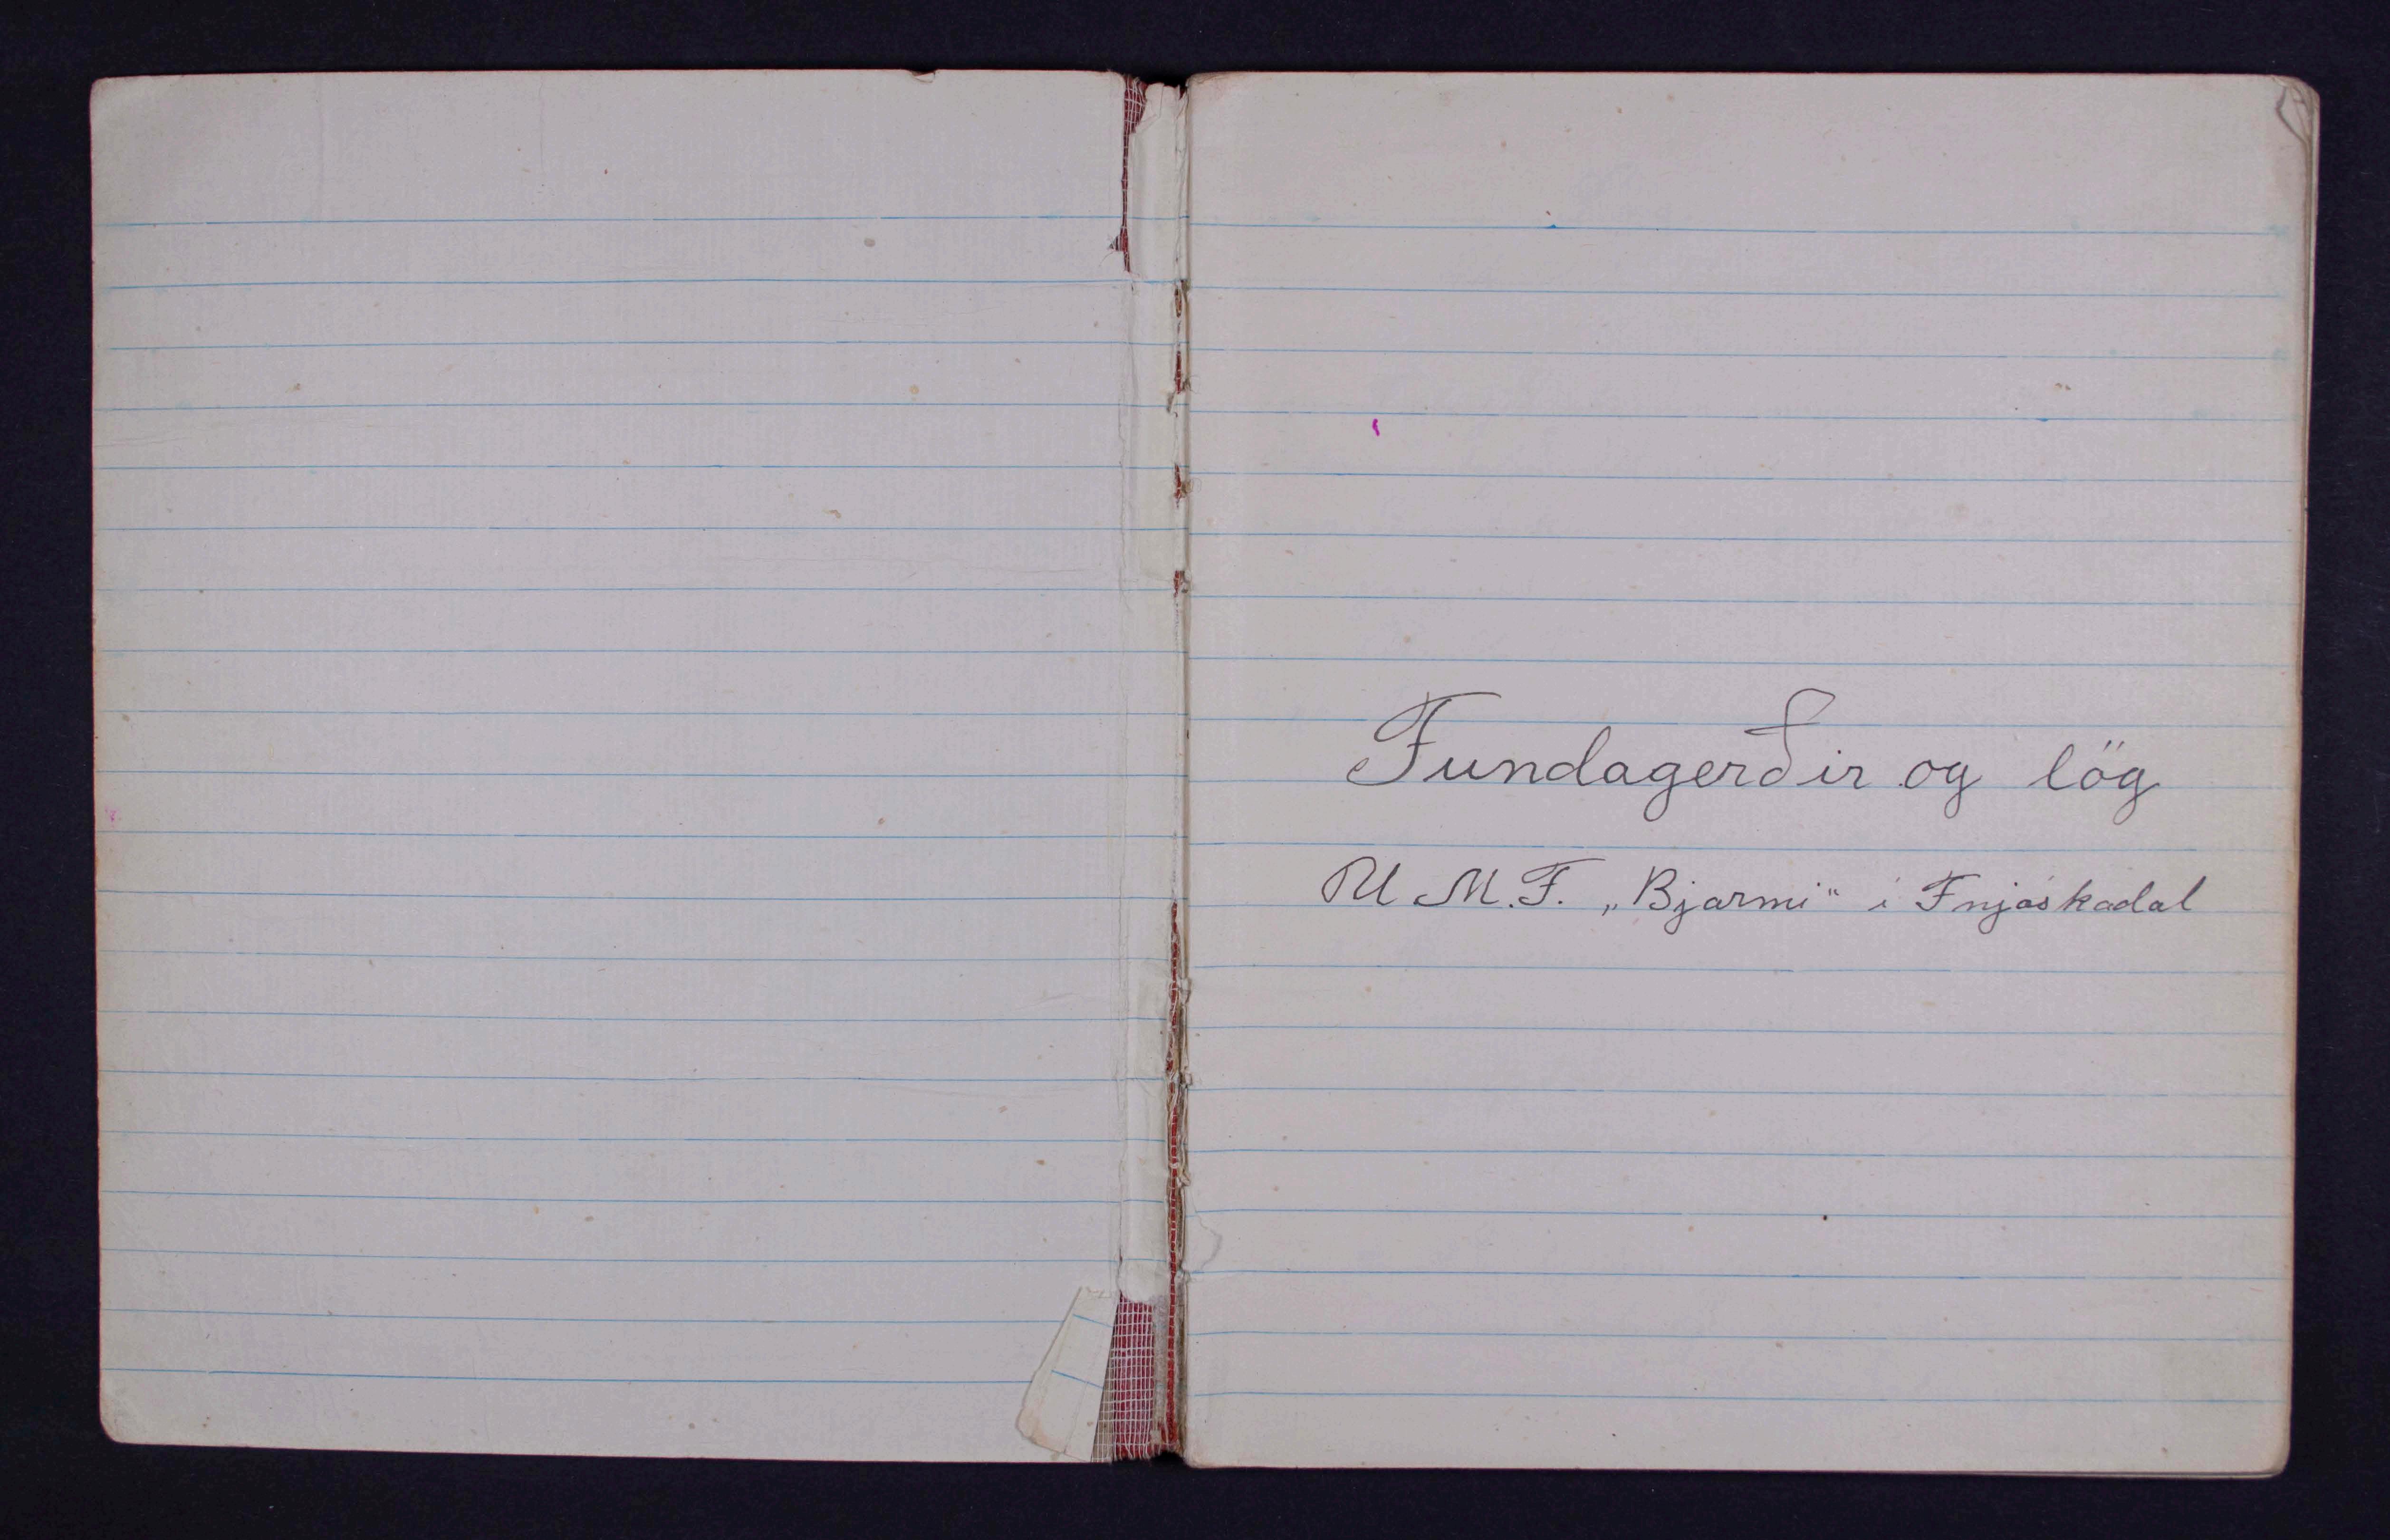 Fundagerðir og lög
U M.F. „Bjarmi“ í Fnjóskadal